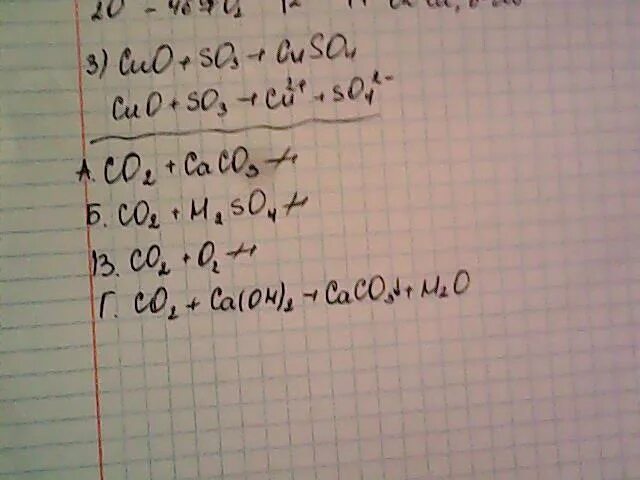 3) CuO + SO₃ → CuSO₄
CuO + SO₃ → Cu²⁺ + SO₄²⁻
А. CO₂ + CaCO₃ ↛
Б. CO₂ + H₂SO₄ ↛
В. CO₂ + O₂ ↛
Г. CO₂ + Ca(OH)₂ → CaCO₃↓ + H₂O